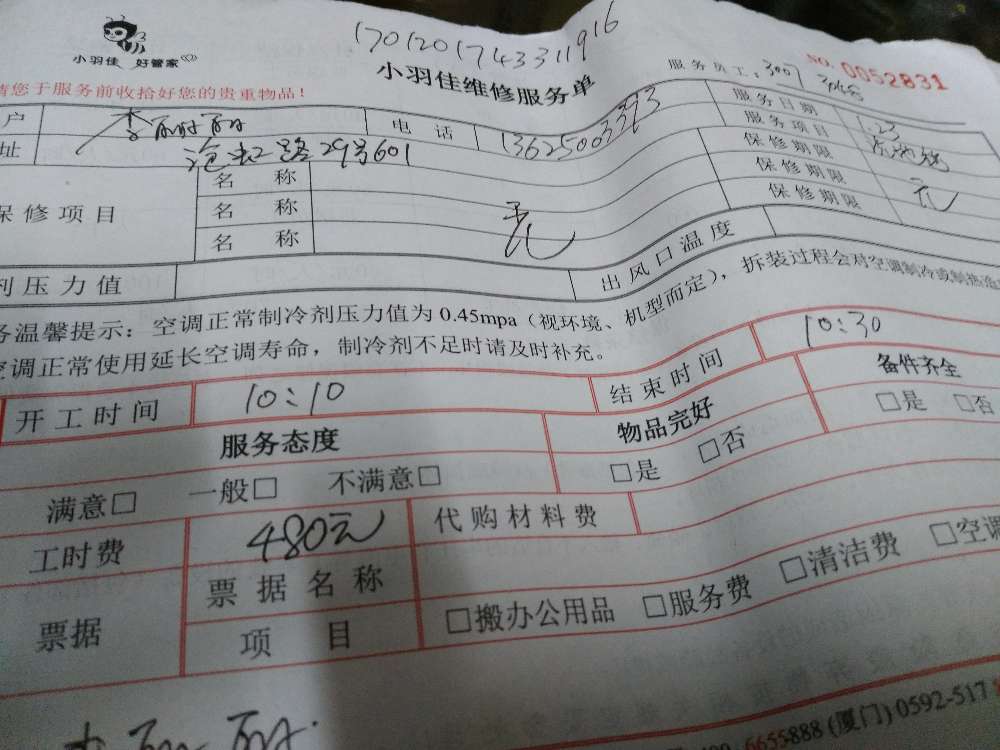 17012017433 11916
小羽佳 好管家
小羽佳维修服务单
服务员工: 3007
NO. 0052831
请您于服务前收拾好您的贵重物品!
户 李丽丽 电 话 13625003393 服务日期 1.23
址 沧虹路29号601 服务项目
保修项目 名 称 保修期限
名 称 无 保修期限 元
名 称 保修期限
剂压力值 出风口温度
务温馨提示: 空调正常制冷剂压力值为 0.45mpa (视环境、机型而定), 拆装过程会对空调制冷或制热造
空调正常使用延长空调寿命, 制冷剂不足时请及时补充。
开工时间 10:10 结束时间 10:30
服务态度 物品完好 备件齐全
满意□ 一般□ 不满意□ □是 □否 □是 □否
工时费 480元 代购材料费
票据 票据名称
项 目 □搬办公用品 □服务费 □清洁费 □空调
李丽丽
6655888 (厦门) 0592-517